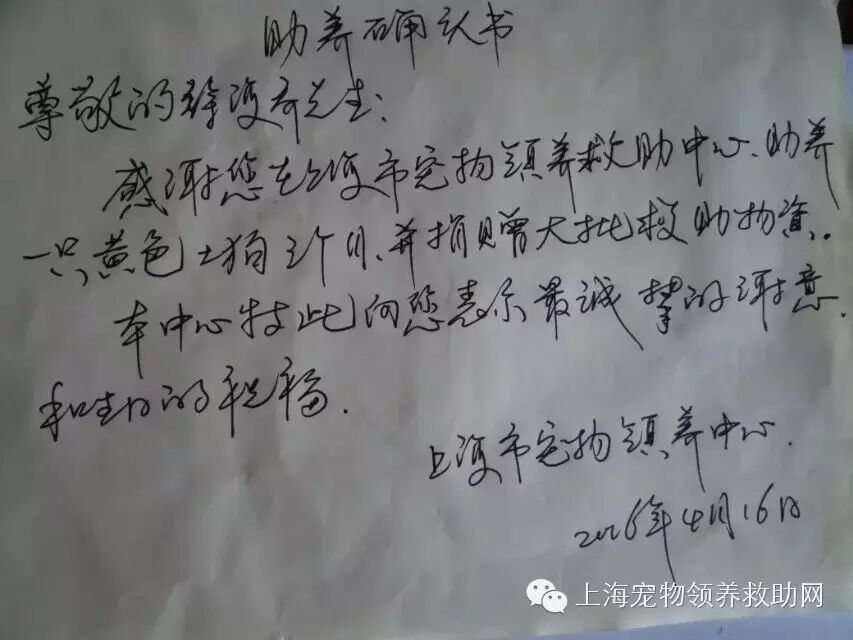 助养确认书
尊敬的徐海奇先生:
感谢您在上海市宠物领养救助中心、助养
一只黄色土狗 3个月、并捐赠大批救助物资.
本中心特此向您表示最诚挚的谢意.
和生日的祝福.
上海市宠物领养中心.
2016年4月16日
上海宠物领养救助网